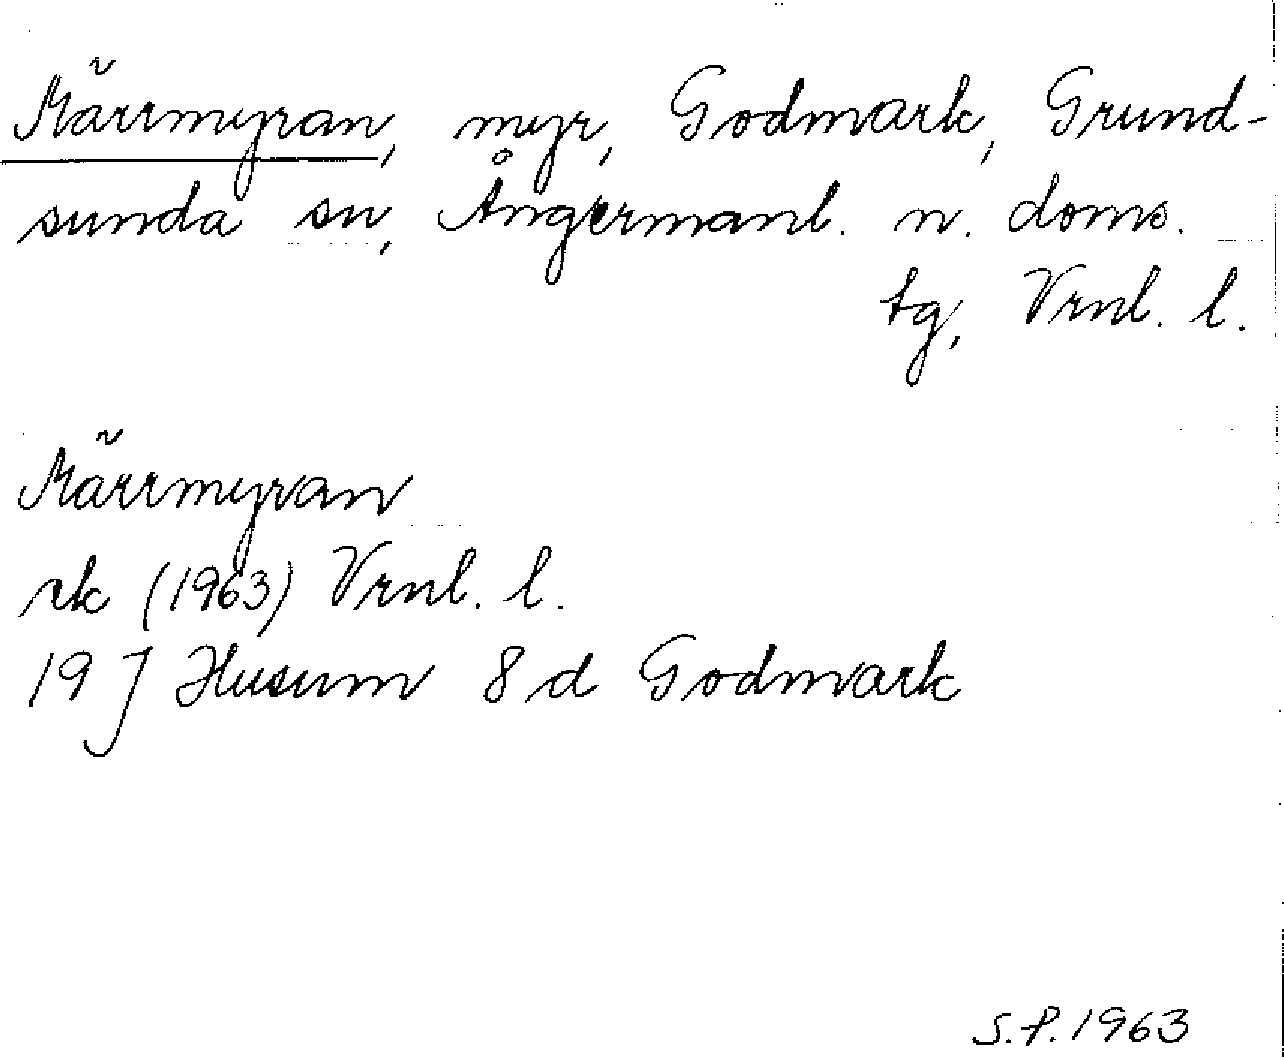 Märrmyran, myr, Godmark, Grund-
sunda sn, Ångermanl. n. doms.
tg, Vrnl. l.
Märrmyran
rk (1963) Vrnl. l.
19 J Husum 8 d Godmark
S.P. 1963